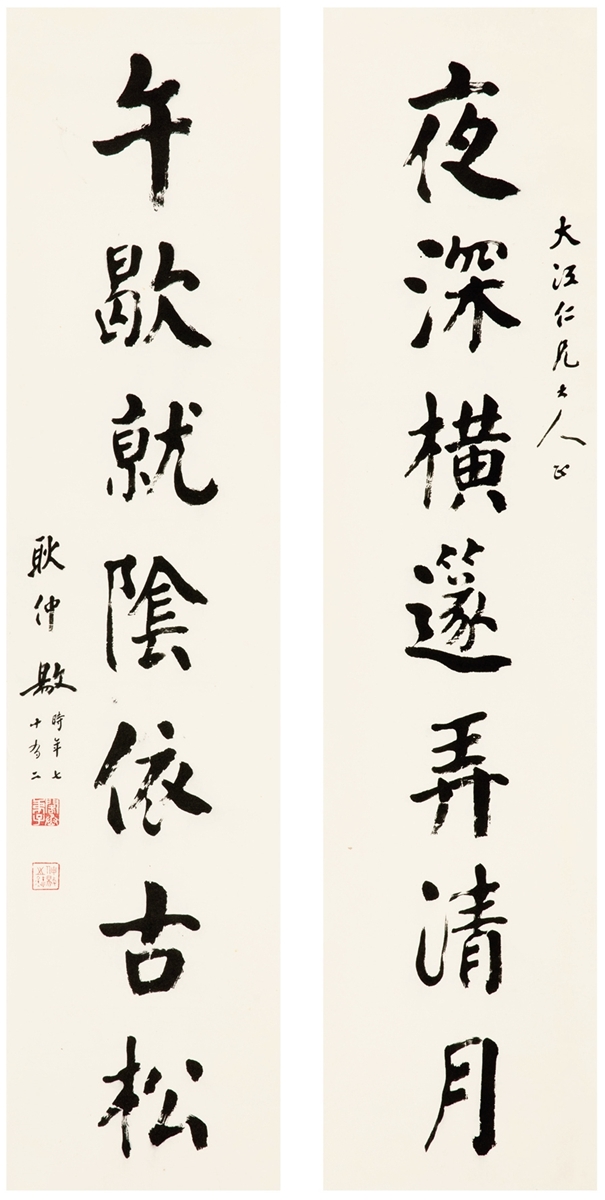 大仁兄大人正
夜深橫篴弄清月
午歇就陰依古松
耿仲敭時年七
十有二